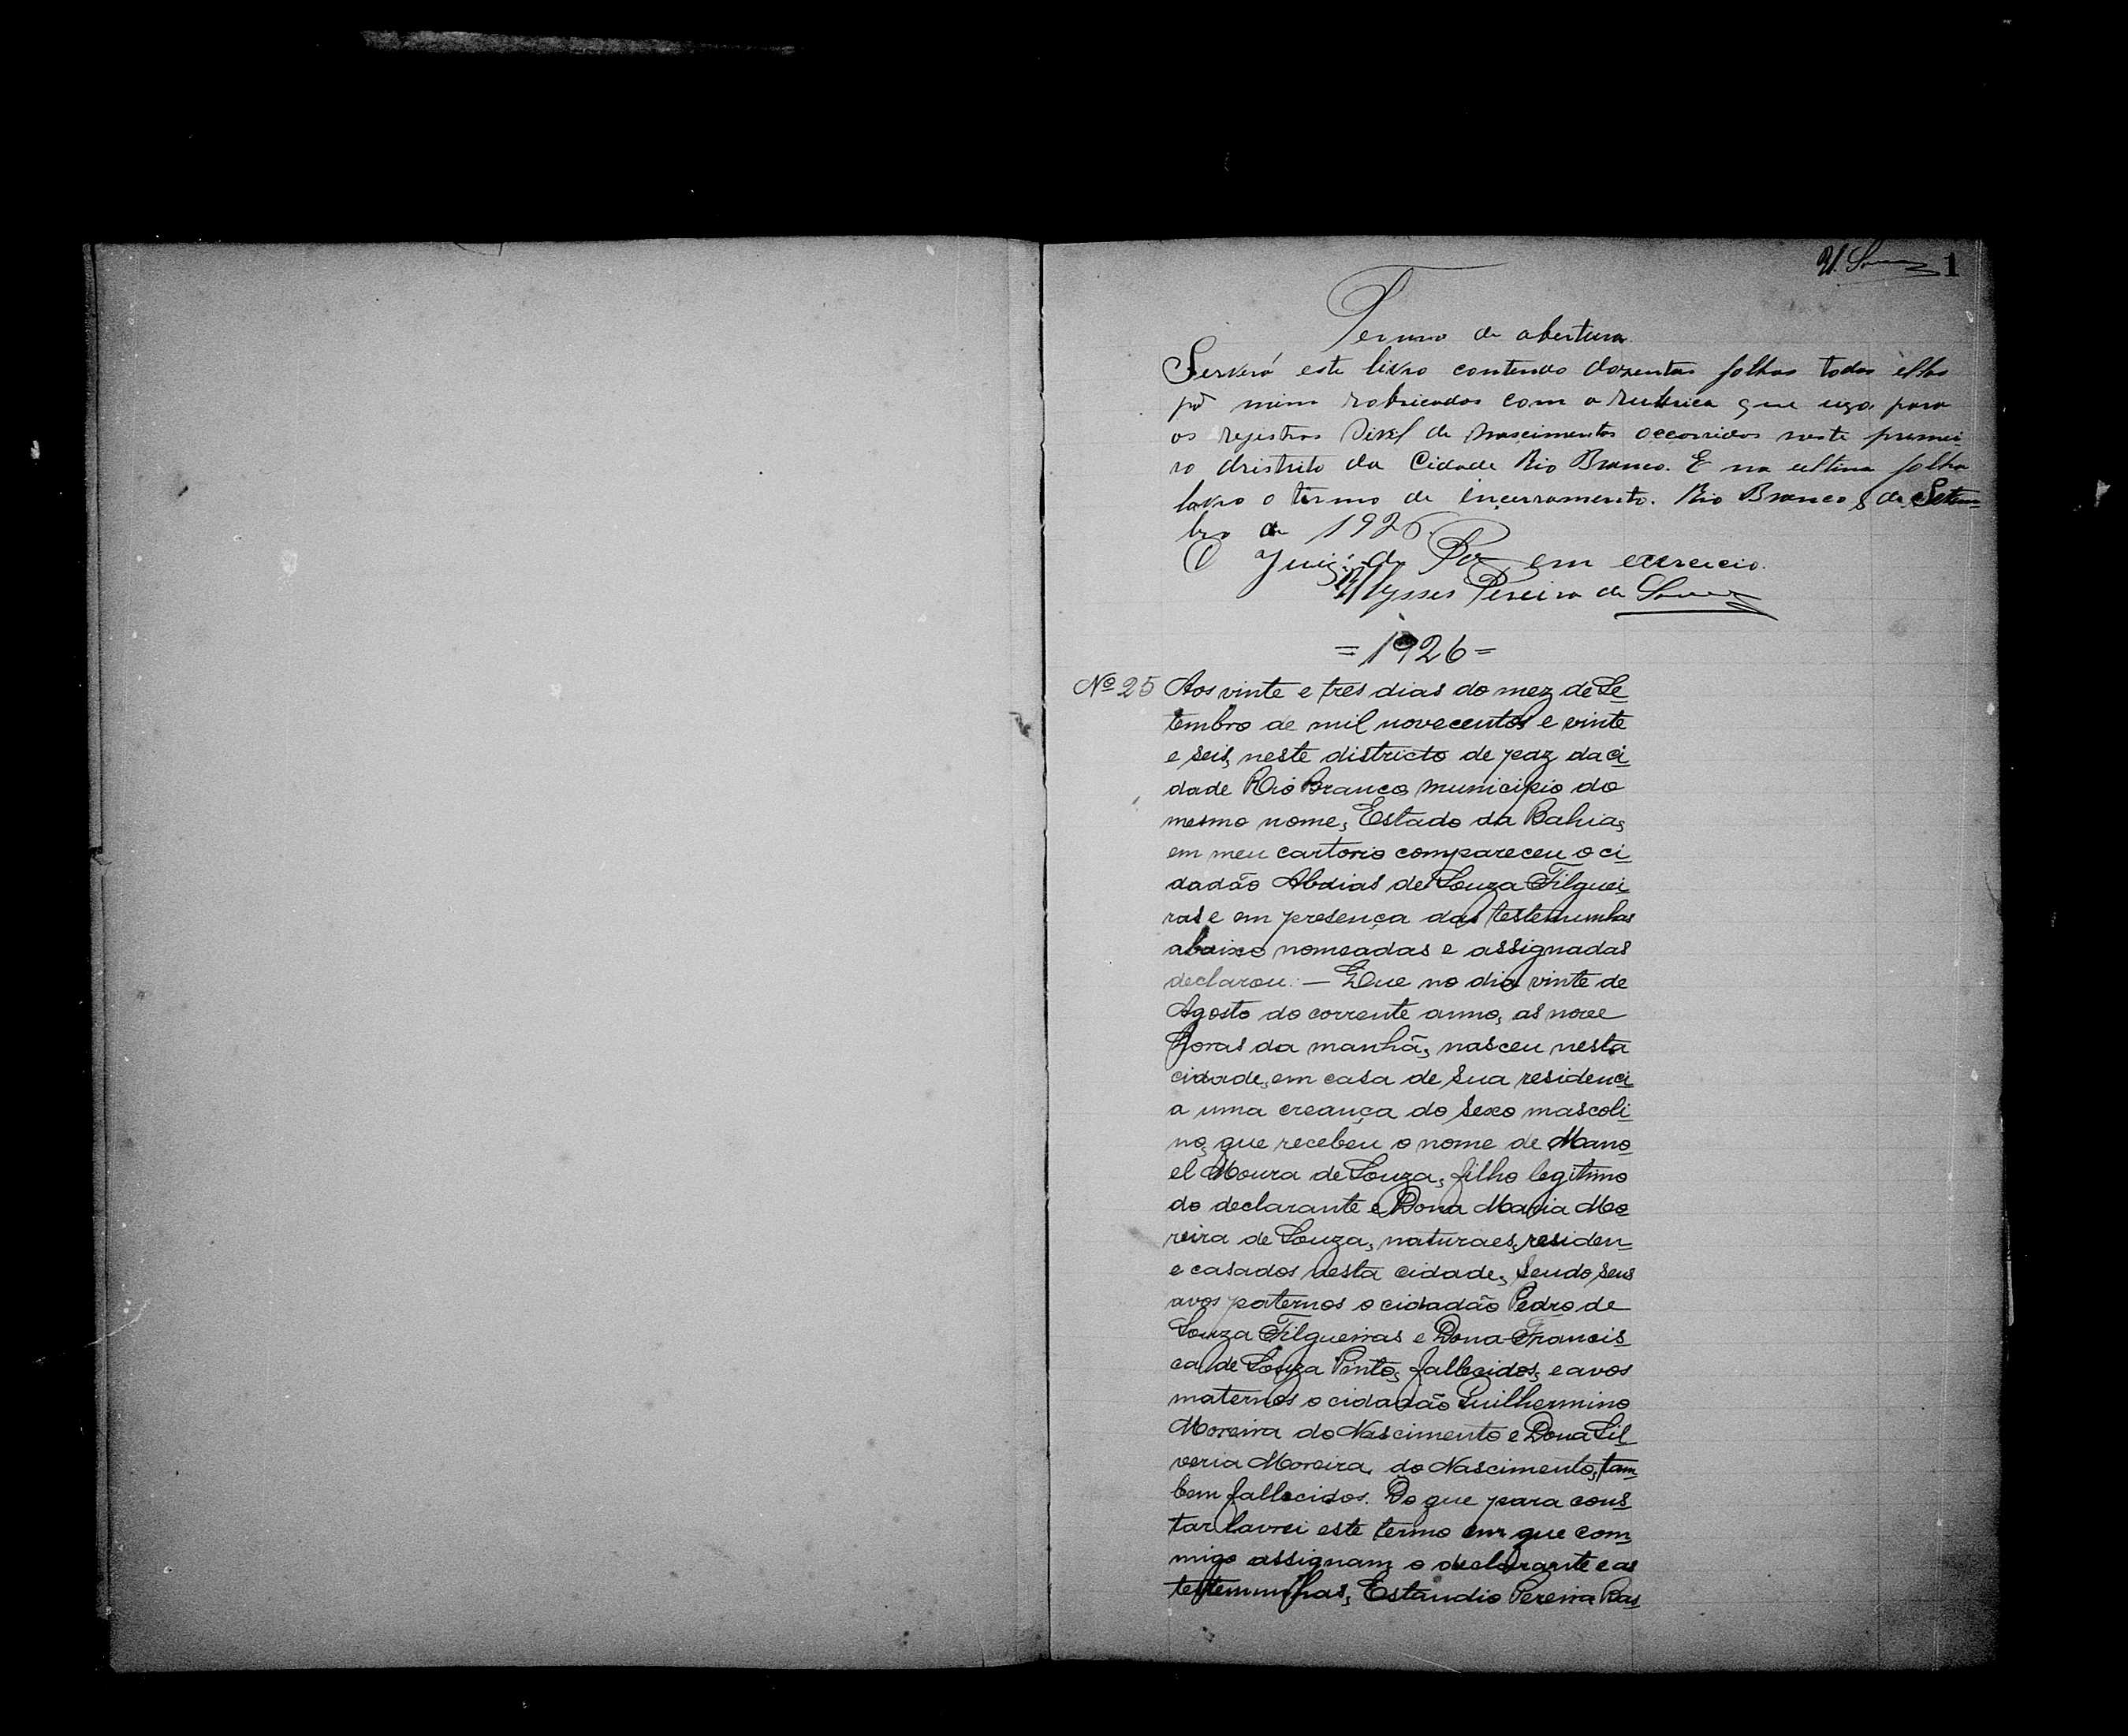 U. Souza 1
Termo de abertura
Servirá este livro contendo dozentas folhas todas ellas
por mim robricadas com a rubrica que uzo, para
os registros Sivil de Nascimentos occorridos neste primei-
ro dristrito da Cidade Rio Branco. E na ultima folha
lavro o termo de incerramento. Rio Branco 8 de Setem-
bro de 1926.
O Juiz de Paz em exercicio.
Ulysses Pereira de Souza
= 1926 =
Nº 25 Aos vinte e tres dias do mez de Se
tembro de mil novecentos e vinte
e seis, neste districto de paz da ci
dade Rio Branco, municipio do
mesmo nome, Estado da Bahia,
em meu cartorio compareceu o ci
dadão Abdias de Souza Filguei
ras e em presença das testemunhas
abaixo nomeadas e assignadas
declarou: — Que no dia vinte de
Agosto do corrente anno, as nove
horas da manhã, nasceu nesta
cidade, em casa de sua residenci
a uma creança do sexo mascoli
no, que recebeu o nome de Mano
el Moura de Souza, filho legitimo
do declarante e Dona Maria Mo
reira de Souza, naturaes, residen
e casados nesta cidade, sendo seus
avos paternos o cidadão Pedro de
Souza Filgueiras e Dona Francis
ca de Souza Pinto, fallecidos, e avos
maternos o cidadão Guilhermino
Moreira do Nascimento e Dona Sil
veria Moreira do Nascimento, tam
bem fallecidos. Do que para cons
tar lavrei este termo em que com
migo assignam o declarante e as
testemunhas, Estandio Pereira Bas